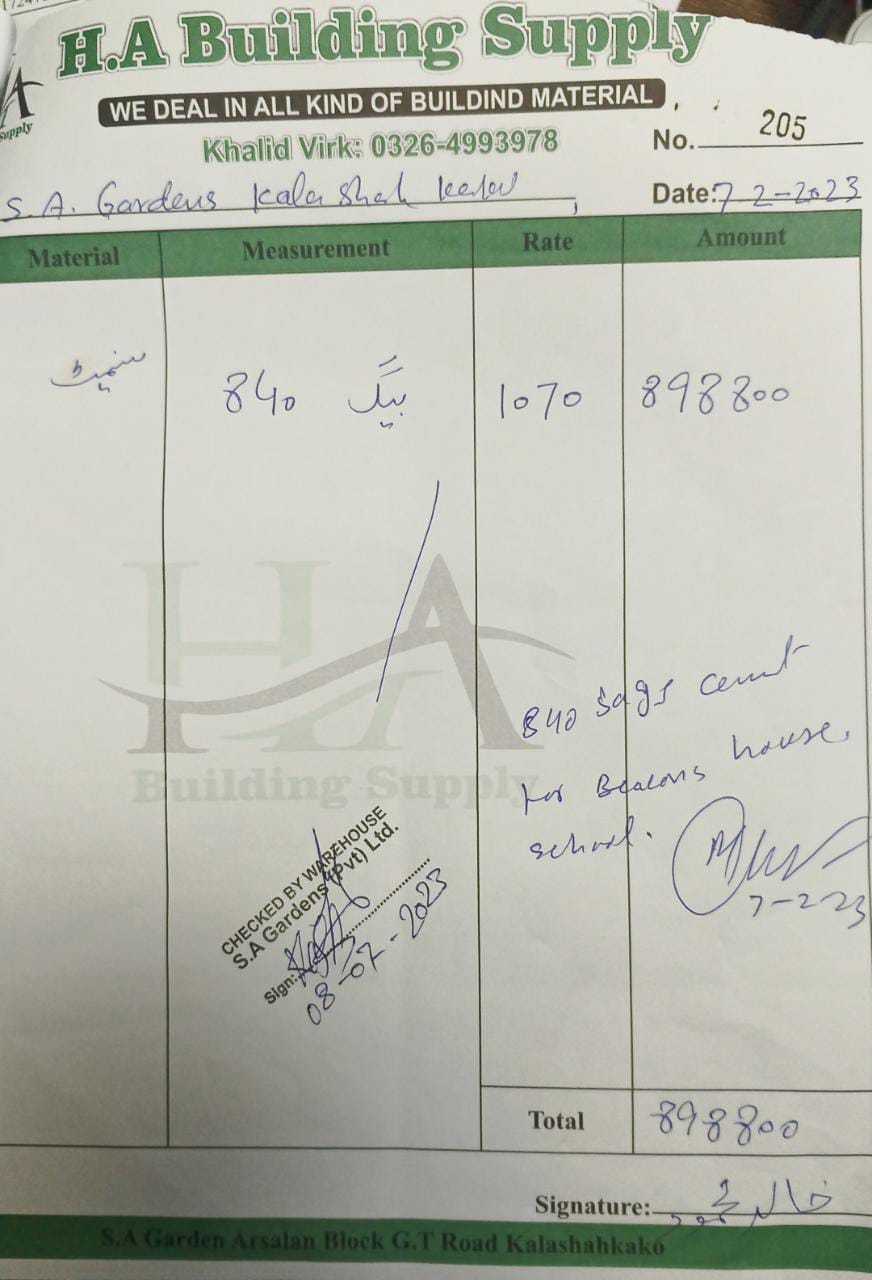 H.A Building Supply
WE DEAL IN ALL KIND OF BUILDIND MATERIAL
Supply
Khalid Virk: 0326-4993978
No. 205
S.A. Gardens Kala Shah
Date: 7-2-2023
Material Measurement Rate Amount
سیمنٹ 840 بیگ 1070 898800
HA
Building Supply
840 bags cemt
for Beacons house
school.
7-2-23
CHECKED BY WAREHOUSE
S.A Gardens (Pvt) Ltd.
Sign:
08-02-2023
Total 898800
Signature: خالد
S.A Garden Arsalan Block G.T Road Kalashahkako